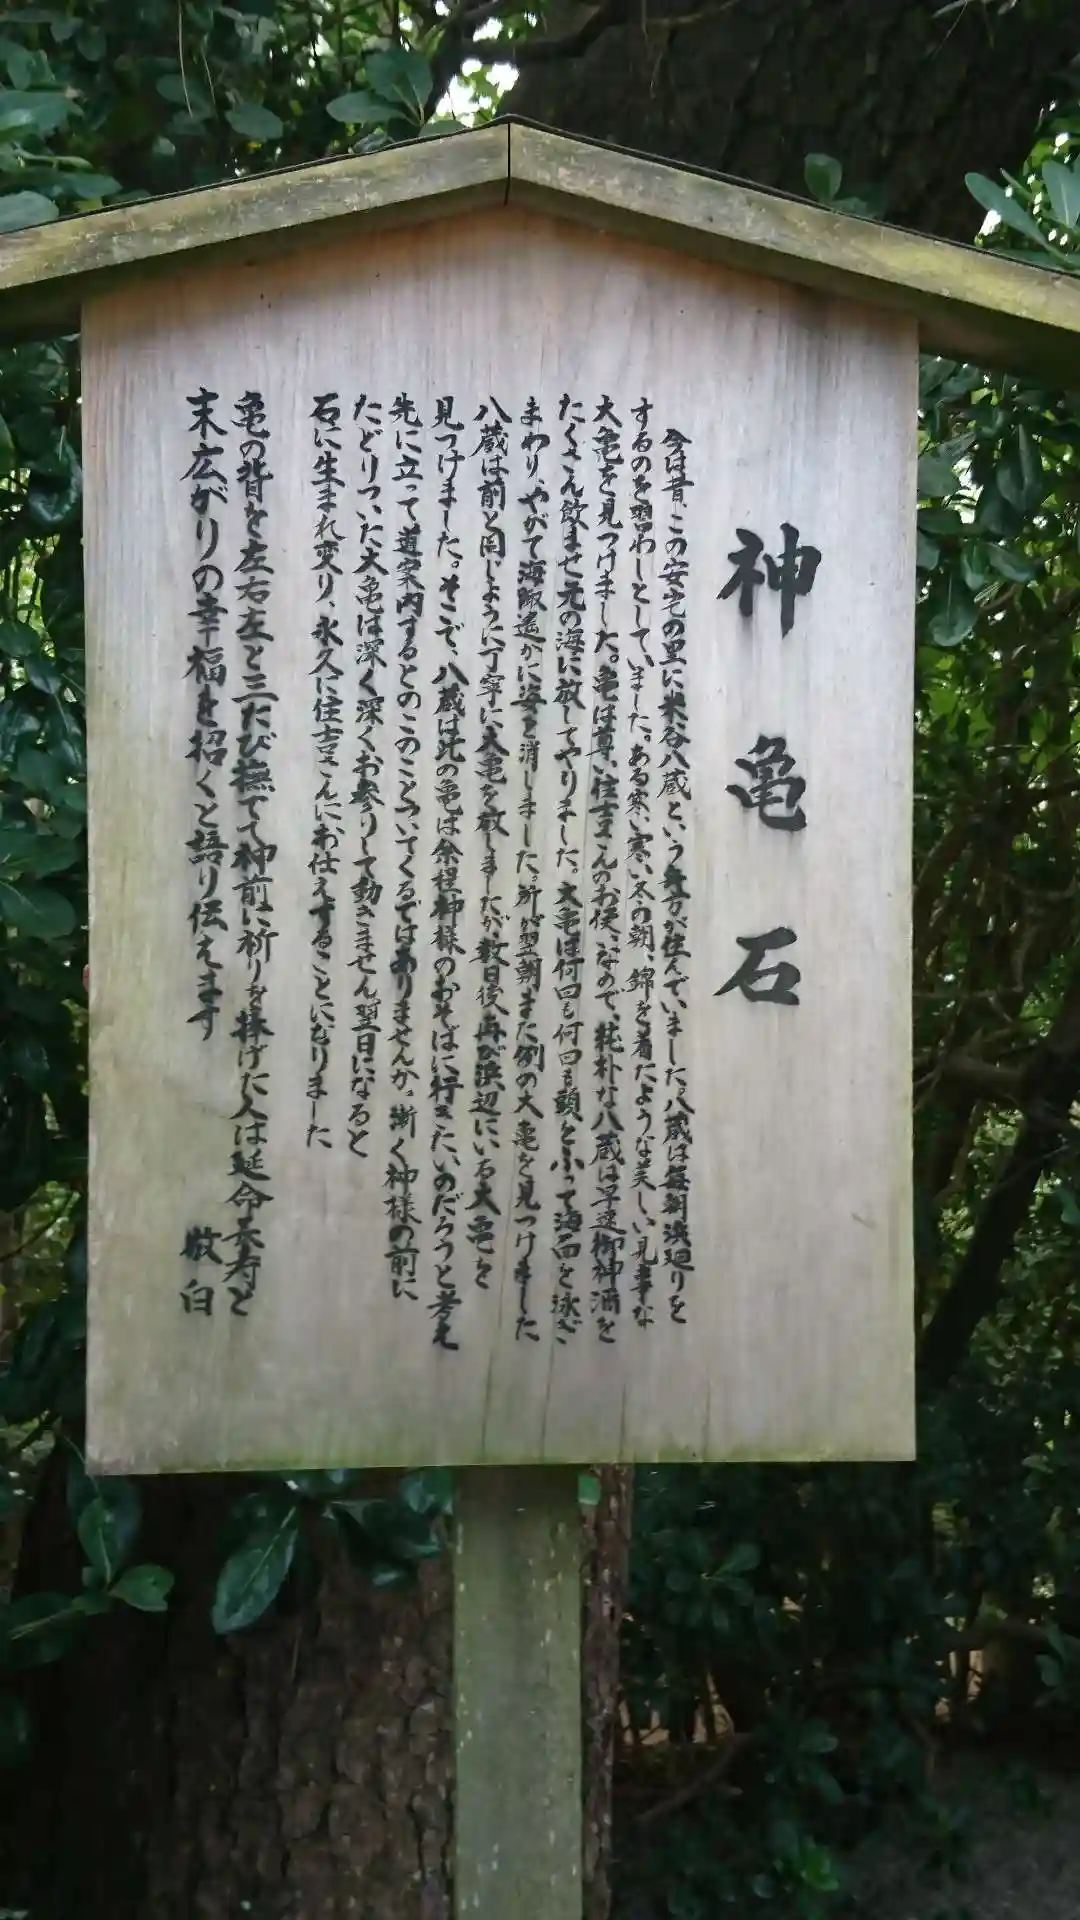 神亀石
今は昔、この安宅の里に米谷八蔵という舞方が住んでいました。八蔵は毎朝浜廻りを
するのを習わしとしていました。ある寒い寒い冬の朝、錦を着たような美しい見事な
大亀を見つけました。亀は尊い住吉さんのお使いなので、純朴な八蔵は早速御神酒を
たくさん飲ませ元の海に放してやりました。大亀は何回も何回も頭をふって海面を泳ぎ
まわり、やがて海原遙かに姿を消しました。所が翌朝また例の大亀を見つけました
八蔵は前と同じように丁寧に大亀を放しましたが、数日後、再び浜辺にいる大亀を
見つけました。そこで、八蔵は此の亀は余程神様のおそばに行きたいのだろうと考え
先に立って道案内するとのこのことついてくるではありませんか。漸く神様の前に
たどりついた大亀は深く深くお参りして動きません翌日になると
石に生まれ変り、永久に住吉さんにお仕えすることになりました
亀の背を左右左と三たび撫でて神前に祈りを捧げた人は延命長寿と
末広がりの幸福を招くと語り伝えます
敬白